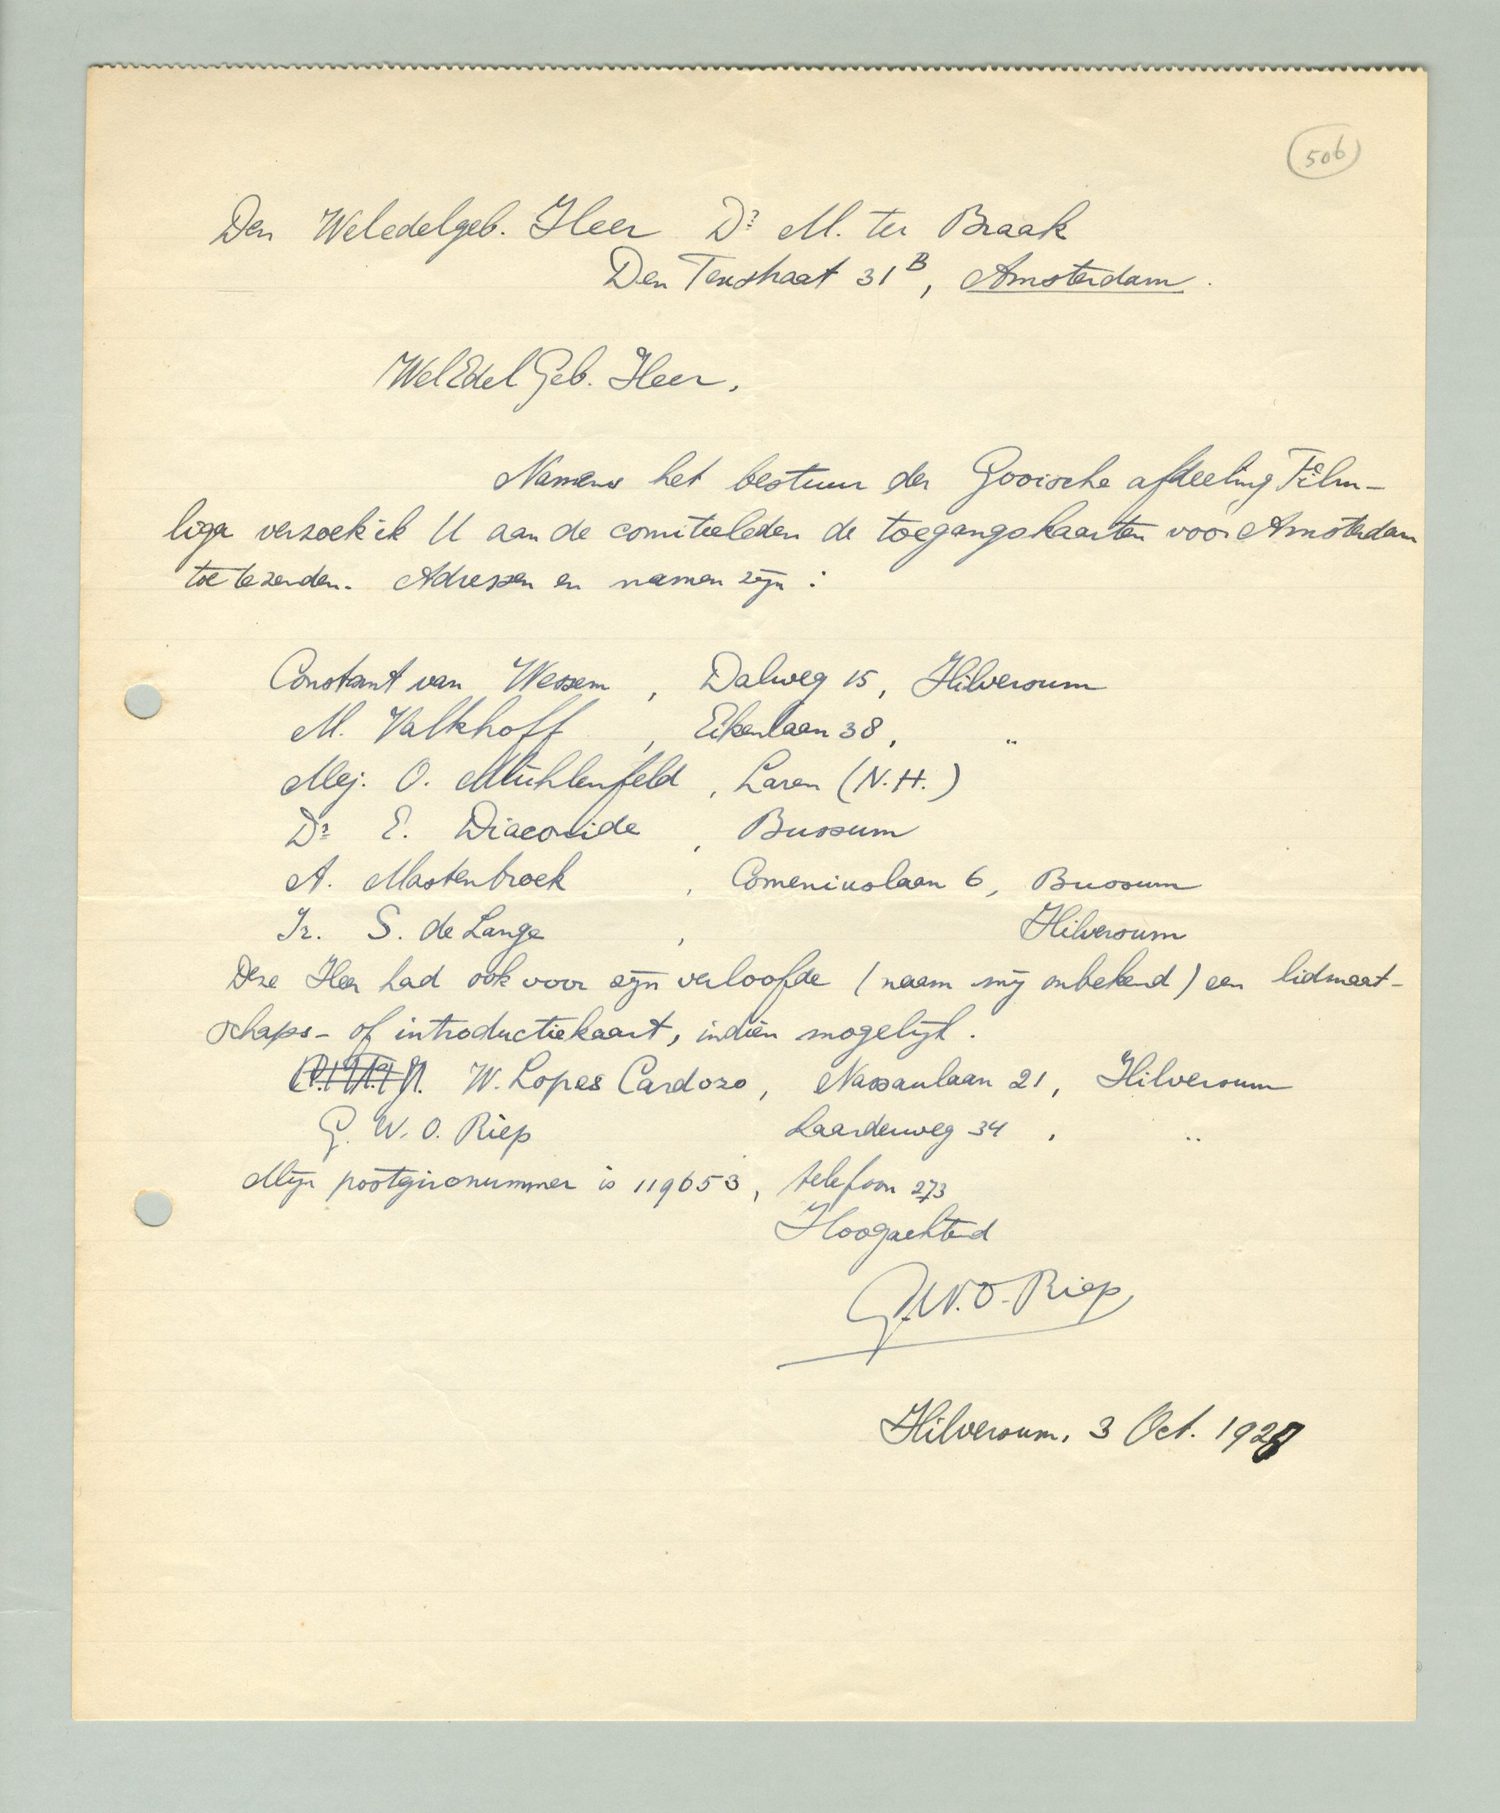 506
Den Weledelgeb. Heer Dr M. ter Braak
Den Texstraat 31B, Amsterdam.
WelEdelGeb. Heer,
Namens het bestuur der Gooische afdeeling Film-
liga verzoek ik U aan de comiteeleden de toegangskaarten voor Amsterdam
toe te zenden. Adressen en namen zijn:
Constant van Wessem, Dalweg 15, Hilversum
M. Valkhoff, Eikenlaan 38, "
Mej. O. Mühlenfeld, Laren (N.H.)
Dr E. Diaconide, Bussum
A. Mastenbroek, Comeniuslaan 6, Bussum
Ir. S. de Lange, Hilversum
Deze Heer had ook voor zijn verloofde (naam mij onbekend) een lidmaat-
schaps- of introductiekaart, indien mogelijk.
W. Lopes Cardozo, Nassaulaan 21, Hilversum
G. W. O. Riep Laarderweg 34, "
Mijn postgironummer is 119653, telefoon 273
Hoogachtend
G.W.O. Riep
Hilversum, 3 Oct. 1927